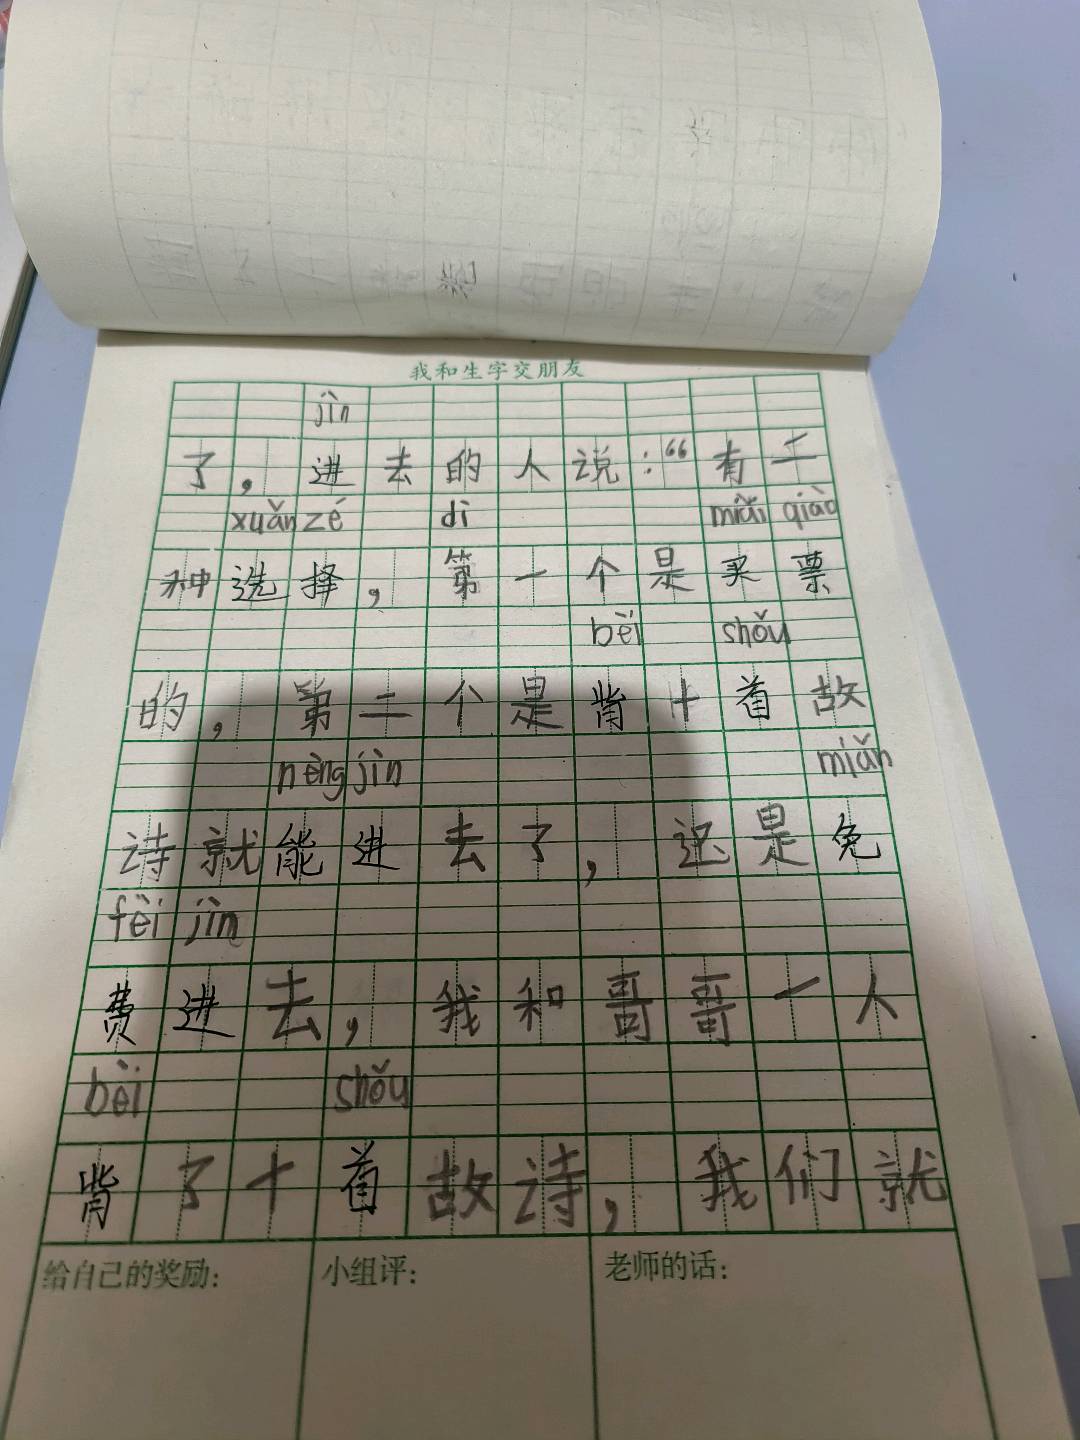 我和生字交朋友
jìn
了，进去的人说：“有二
xuǎn zé dì mǎi qiào
种选择，第一个是买票
bèi shǒu
的，第二个是背十首故
nèng jìn miǎn
诗就能进去了，还是免
fèi jìn
费进去，我和哥哥一人
bèi shǒu
背了十首故诗，我们就
给自己的奖励： 小组评： 老师的话：